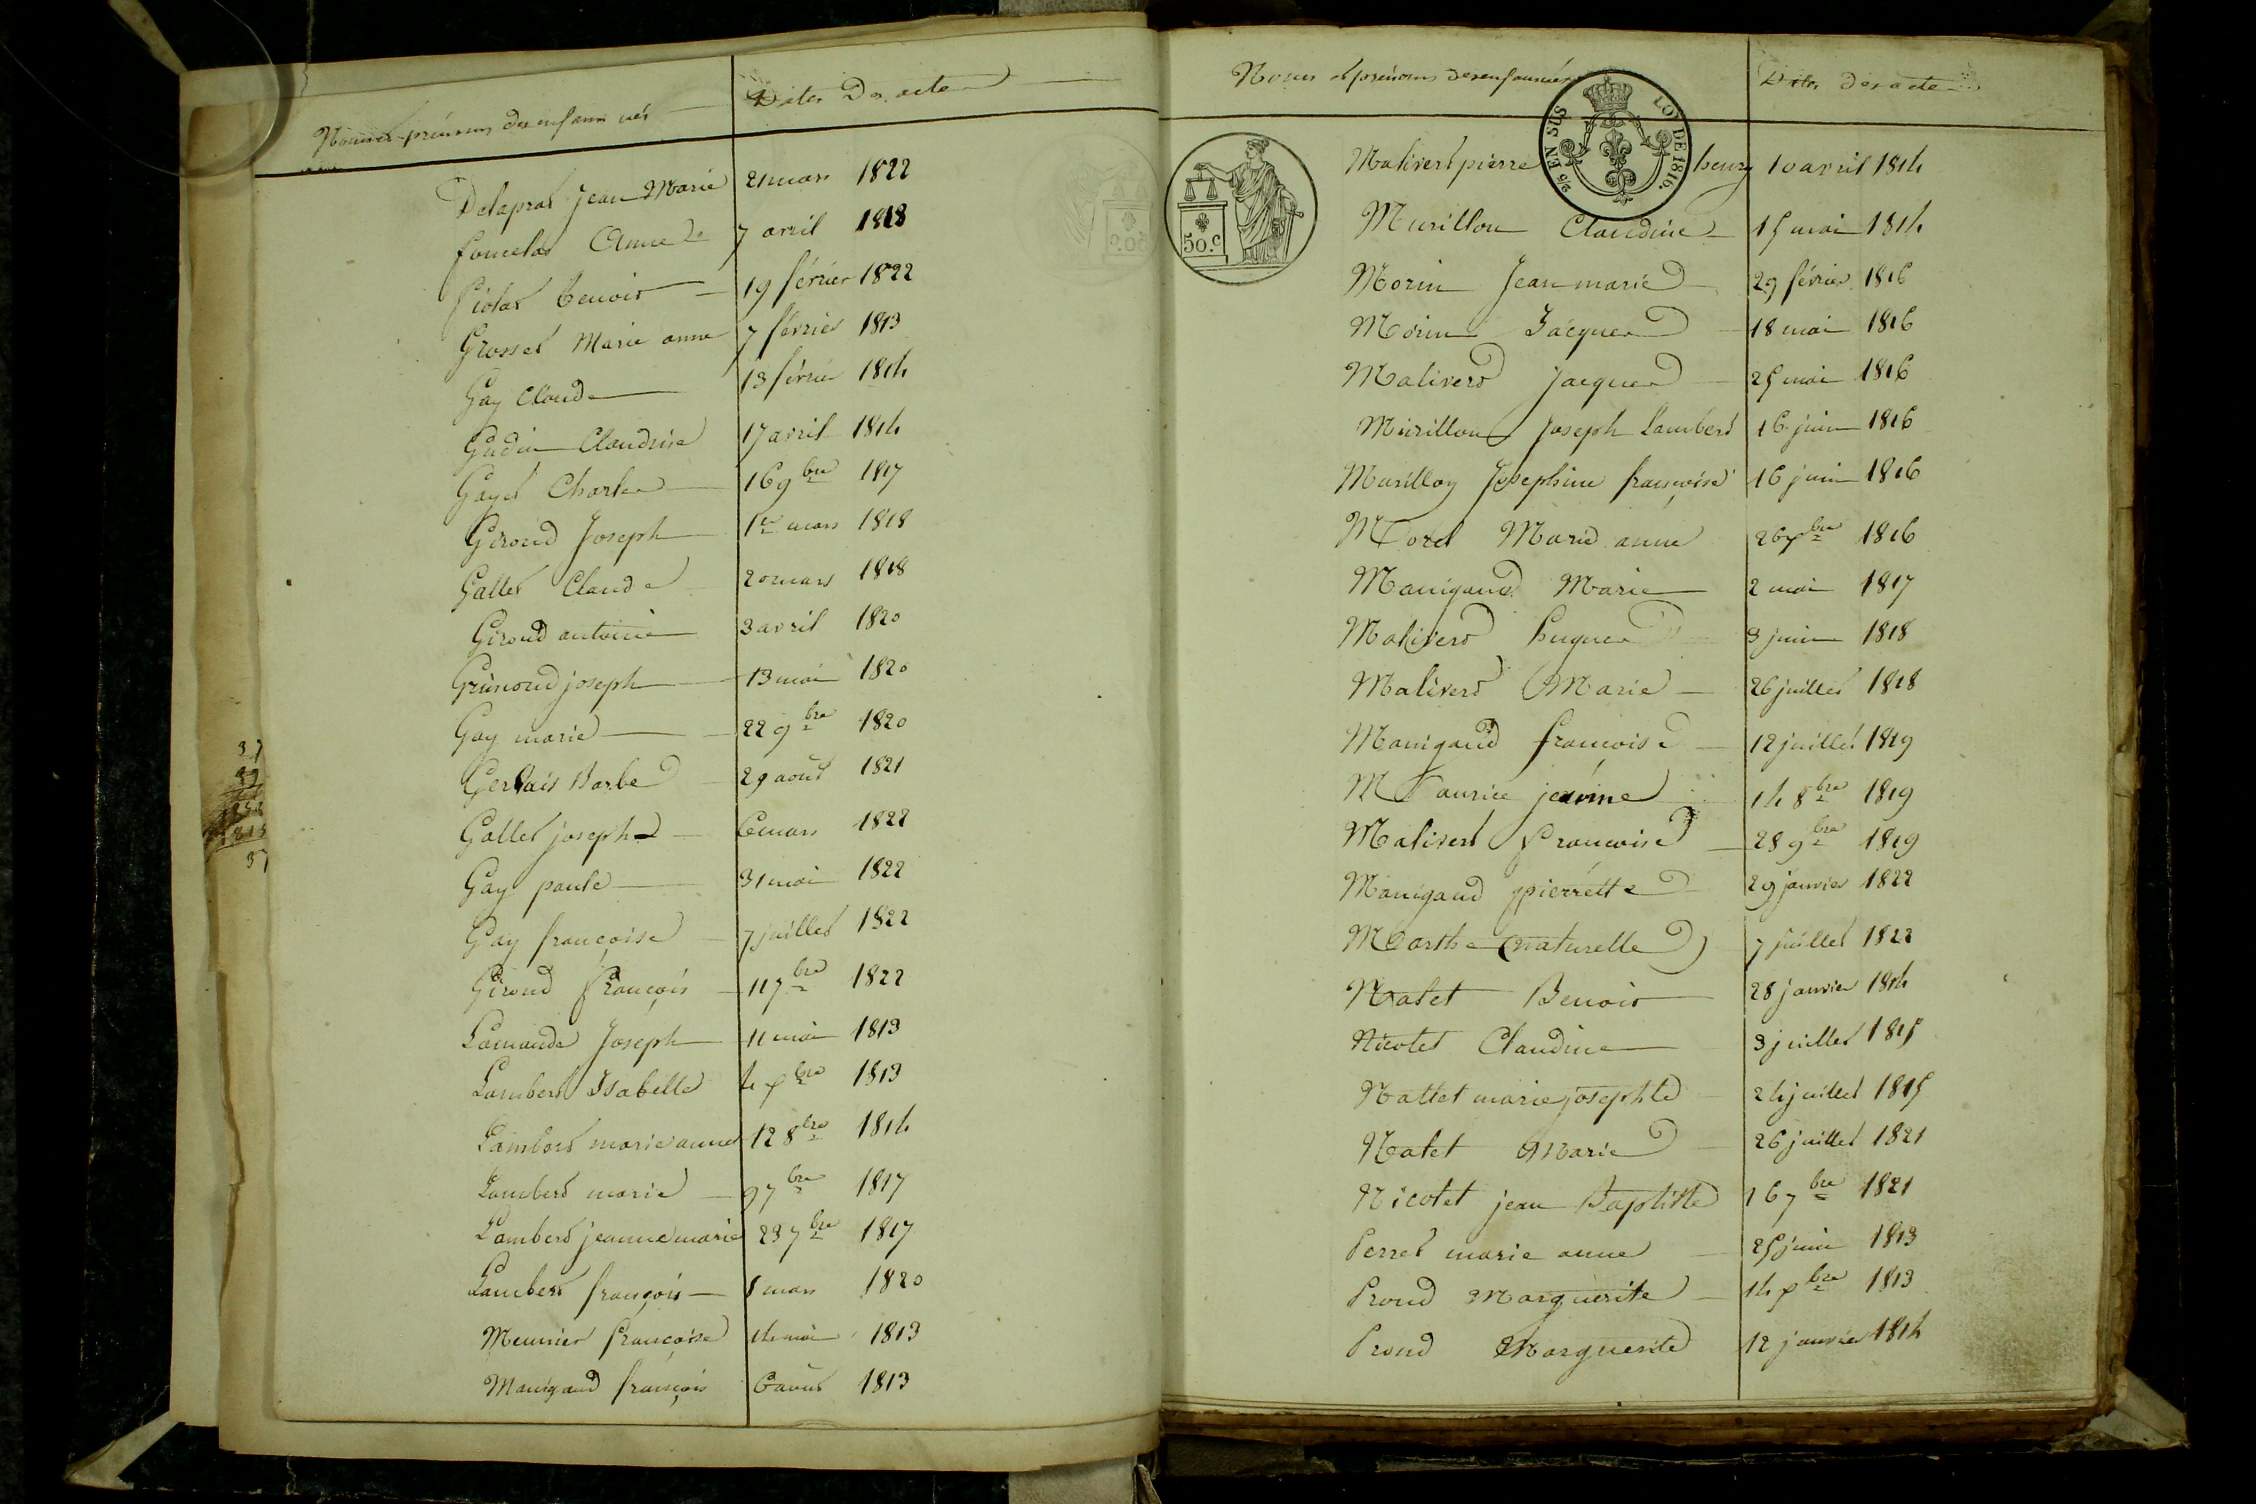 Noms et prénoms des enfans nés Dates Des actes
Delaprat Jean Marie 21 mars 1822
foncelas Anne 7 avril 1818
Piotat Benoit 19 février 1822
Grosset Marie anne 7 février 1813
Gay Claude 13 février 1814
Gudin Claudine 17 avril 1814
Gayet Charles 16 9bre 1817
Giroud Joseph 1er mars 1818
Gallet Claude 20 mars 1818
Giroud antoine 3 avril 1820
Grimoud joseph 13 mai 1820
Gay marie 22 9bre 1820
Gervais Barbe 29 août 1821
Gallet joseph 6 mars 1822
Gay paule 31 mai 1822
Gay françoise 7 juillet 1822
Giroud François 11 7bre 1822
Lamande Joseph 11 mai 1813
Lambert Isabelle 4 xbre 1813
Lambert marie anne 12 8bre 1814
Lambert marie 9 7bre 1817
Lambert jeanne marie 23 7bre 1817
Lambert françois 8 mars 1820
Meunier françoise 14 mai 1813
Manigand françois 6 août 1813
50.c
5/6 EN SUS LOI DE 1816.
Noms et prénoms des enfans nés Dates des actes
Malivert pierre heury 10 avril 1814
Murillon Claudine 15 mai 1814
Morin Jean marie 29 février 1816
Morin Jacques 18 mai 1816
Malivert Jacques 25 mai 1816
Murillon Joseph Lambert 16 juin 1816
Murillon Josephine françoise 16 juin 1816
Morel Marie anne 26 xbre 1816
Manigand Marie 2 mai 1817
Malivert hugues 3 juin 1818
Malivert Marie 26 juillet 1818
Manigand françoise 12 juillet 1819
Maurice jeanne 14 8bre 1819
Malivert françoise 28 9bre 1819
Manigand pierrette 29 janvier 1822
Marthe (naturelle) 7 juillet 1822
Natet Benoit 28 janvier 1814
Nicolet Claudine 3 juillet 1815
Nattet marie josephte 24 juillet 1815
Natet Marie 26 juillet 1821
Nicolet jean Baptiste 16 7bre 1821
Perret marie anne 25 juin 1813
Proud Marguerite 14 xbre 1813
Proud Marguerite 12 janvier 1814